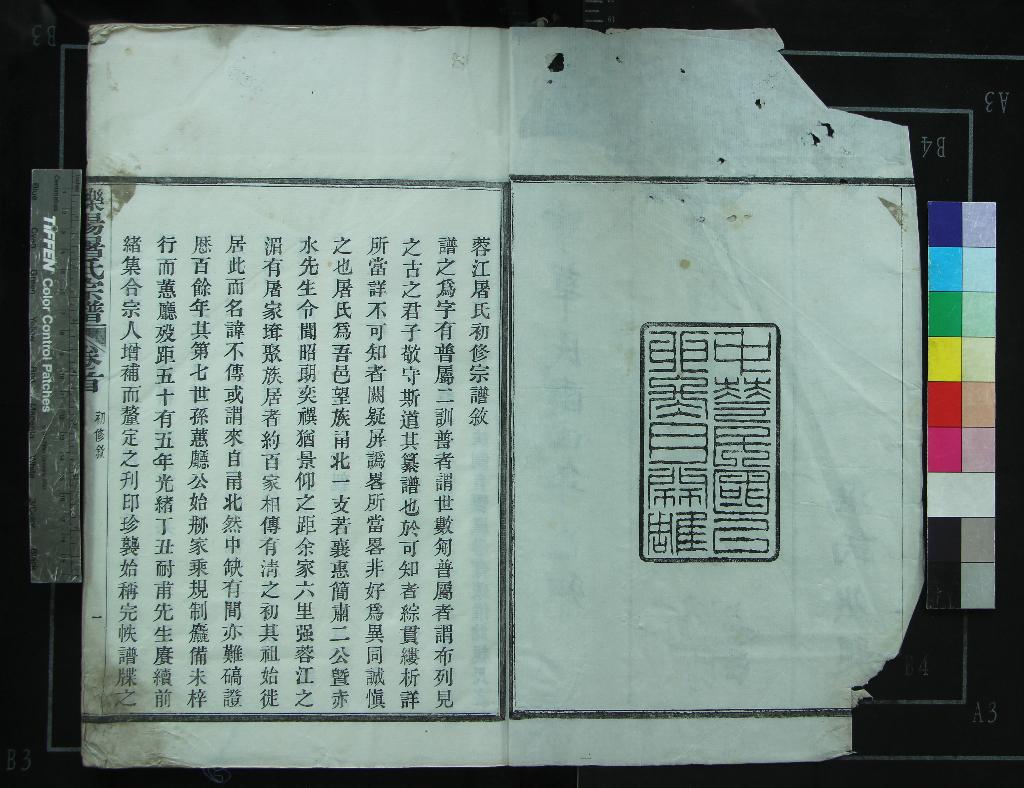 中華民國
蓉江屠氏初修宗譜敘
譜之爲字有普屬二訓普者謂世數匈普屬者謂布列見
之古之君子敬守斯道其纂譜也於可知者綜貫縷析詳
所當詳不可知者闕疑屏譌畧所當畧非好爲異同誠愼
之也屠氏爲吾邑望族甬北一支若襄惠簡肅二公曁赤
水先生令聞昭朗奕禩猶景仰之距余家六里强蓉江之
湄有屠家聚族居者約百家相傳有清之初其祖始徙
居此而名諱不傳或謂來自甬北然中缺有間亦難碻證
厯百餘年其第七世孫蕙廳公始刱家乘規制麤備未梓
行而蕙廳殁距五十有五年光緒丁丑耐甫先生賡續前
緒集合宗人增補而釐定之刊印珍襲始稱完帙譜牒之
陽屠氏宗譜 卷首 初修敘 一
TIFFEN Color Control Patches
B3
B4
A3
B4
A3
B3